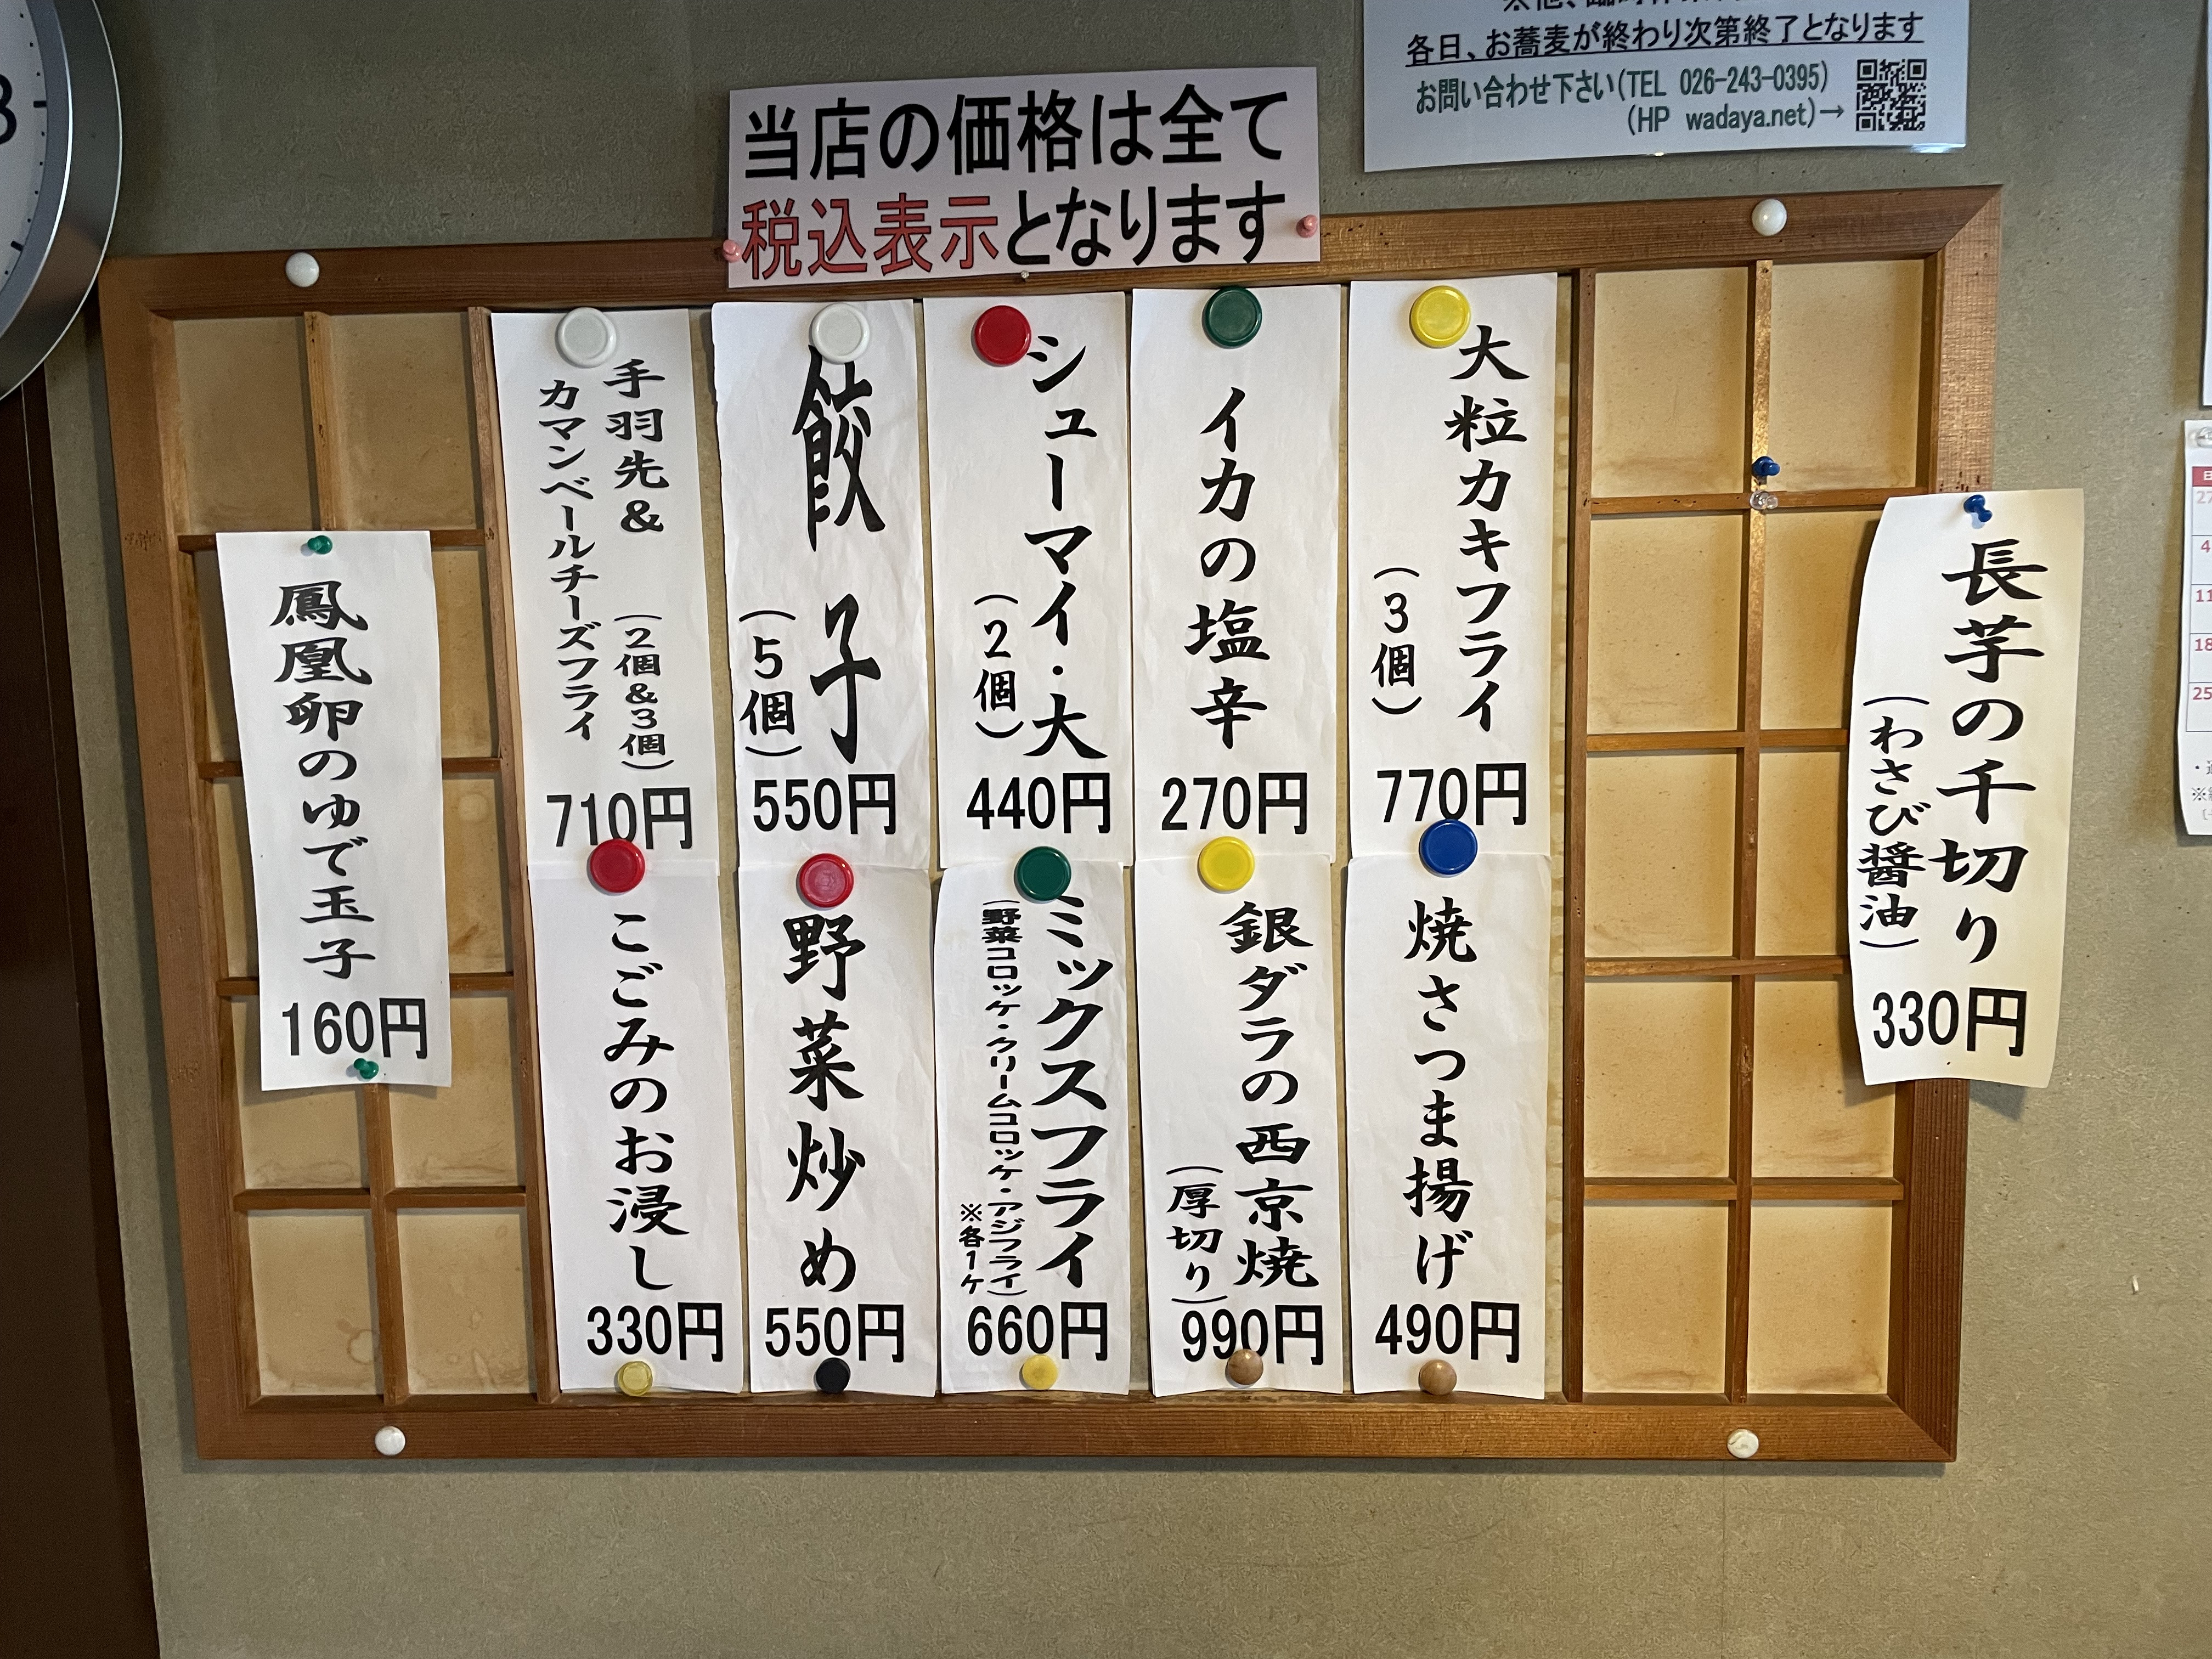 各日、お蕎麦が終わり次第終了となります
お問い合わせ下さい(TEL 026-243-0395)
(HP wadaya.net)→
当店の価格は全て
税込表示となります
長芋の千切り
(わさび醤油)
330円
大粒カキフライ
(3個)
770円
イカの塩辛
270円
シューマイ・大
(2個)
440円
餃子
(5個)
550円
手羽先&
カマンベールチーズフライ
(2個&3個)
710円
焼さつま揚げ
490円
銀ダラの西京焼
(厚切り)
990円
ミックスフライ
(野菜コロッケ・クリームコロッケ・アジフライ)
※各1ケ
660円
野菜炒め
550円
こごみのお浸し
330円
鳳凰卵のゆで玉子
160円